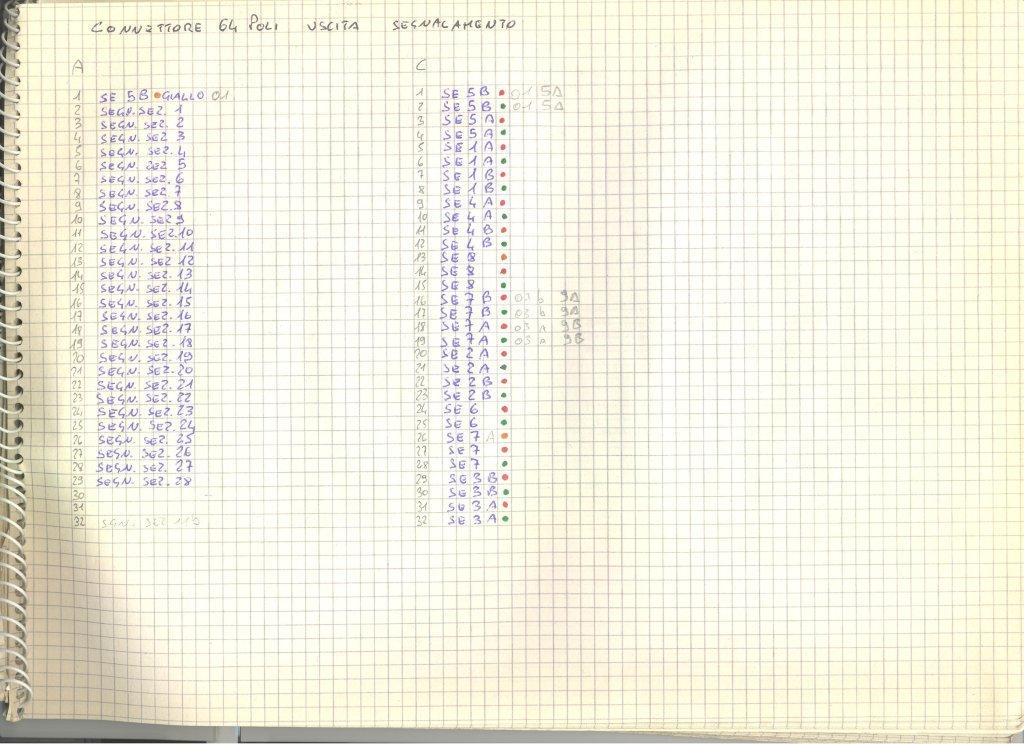 CONNETTORE 64 POLI USCITA SEGNALAMENTO
A
1 SE 5B GIALLO 01
2 SEGN. SEZ. 1
3 SEGN. SEZ. 2
4 SEGN. SEZ 3
5 SEGN. SEZ. 4
6 SEGN. SEZ 5
7 SEGN. SEZ. 6
8 SEGN. SEZ. 7
9 SEGN. SEZ. 8
10 SEGN. SEZ 9
11 SEGN. SEZ. 10
12 SEGN. SEZ. 11
13 SEGN. SEZ 12
14 SEGN. SEZ. 13
15 SEGN. SEZ. 14
16 SEGN. SEZ. 15
17 SEGN. SEZ. 16
18 SEGN. SEZ. 17
19 SEGN. SEZ. 18
20 SEGN. SEZ. 19
21 SEGN. SEZ. 20
22 SEGN. SEZ. 21
23 SEGN. SEZ. 22
24 SEGN. SEZ. 23
25 SEGN. SEZ. 24
26 SEGN. SEZ. 25
27 SEGN. SEZ. 26
28 SEGN. SEZ. 27
29 SEGN. SEZ. 28
30
31
32 SEZ
C
1 SE 5 B 01 5A
2 SE 5 B 01 5A
3 SE 5 A
4 SE 5 A
5 SE 1 A
6 SE 1 A
7 SE 1 B
8 SE 1 B
9 SE 4 A
10 SE 4 A
11 SE 4 B
12 SE 4 B
13 SE 8
14 SE 8
15 SE 8
16 SE 7 B 03 b 9A
17 SE 7 B 03 b 9A
18 SE 7 A 03 a 9B
19 SE 7 A 03 a 9B
20 SE 2 A
21 SE 2 A
22 SE 2 B
23 SE 2 B
24 SE 6
25 SE 6
26 SE 7 A
27 SE 7
28 SE 7
29 SE 3 B
30 SE 3 B
31 SE 3 A
32 SE 3 A